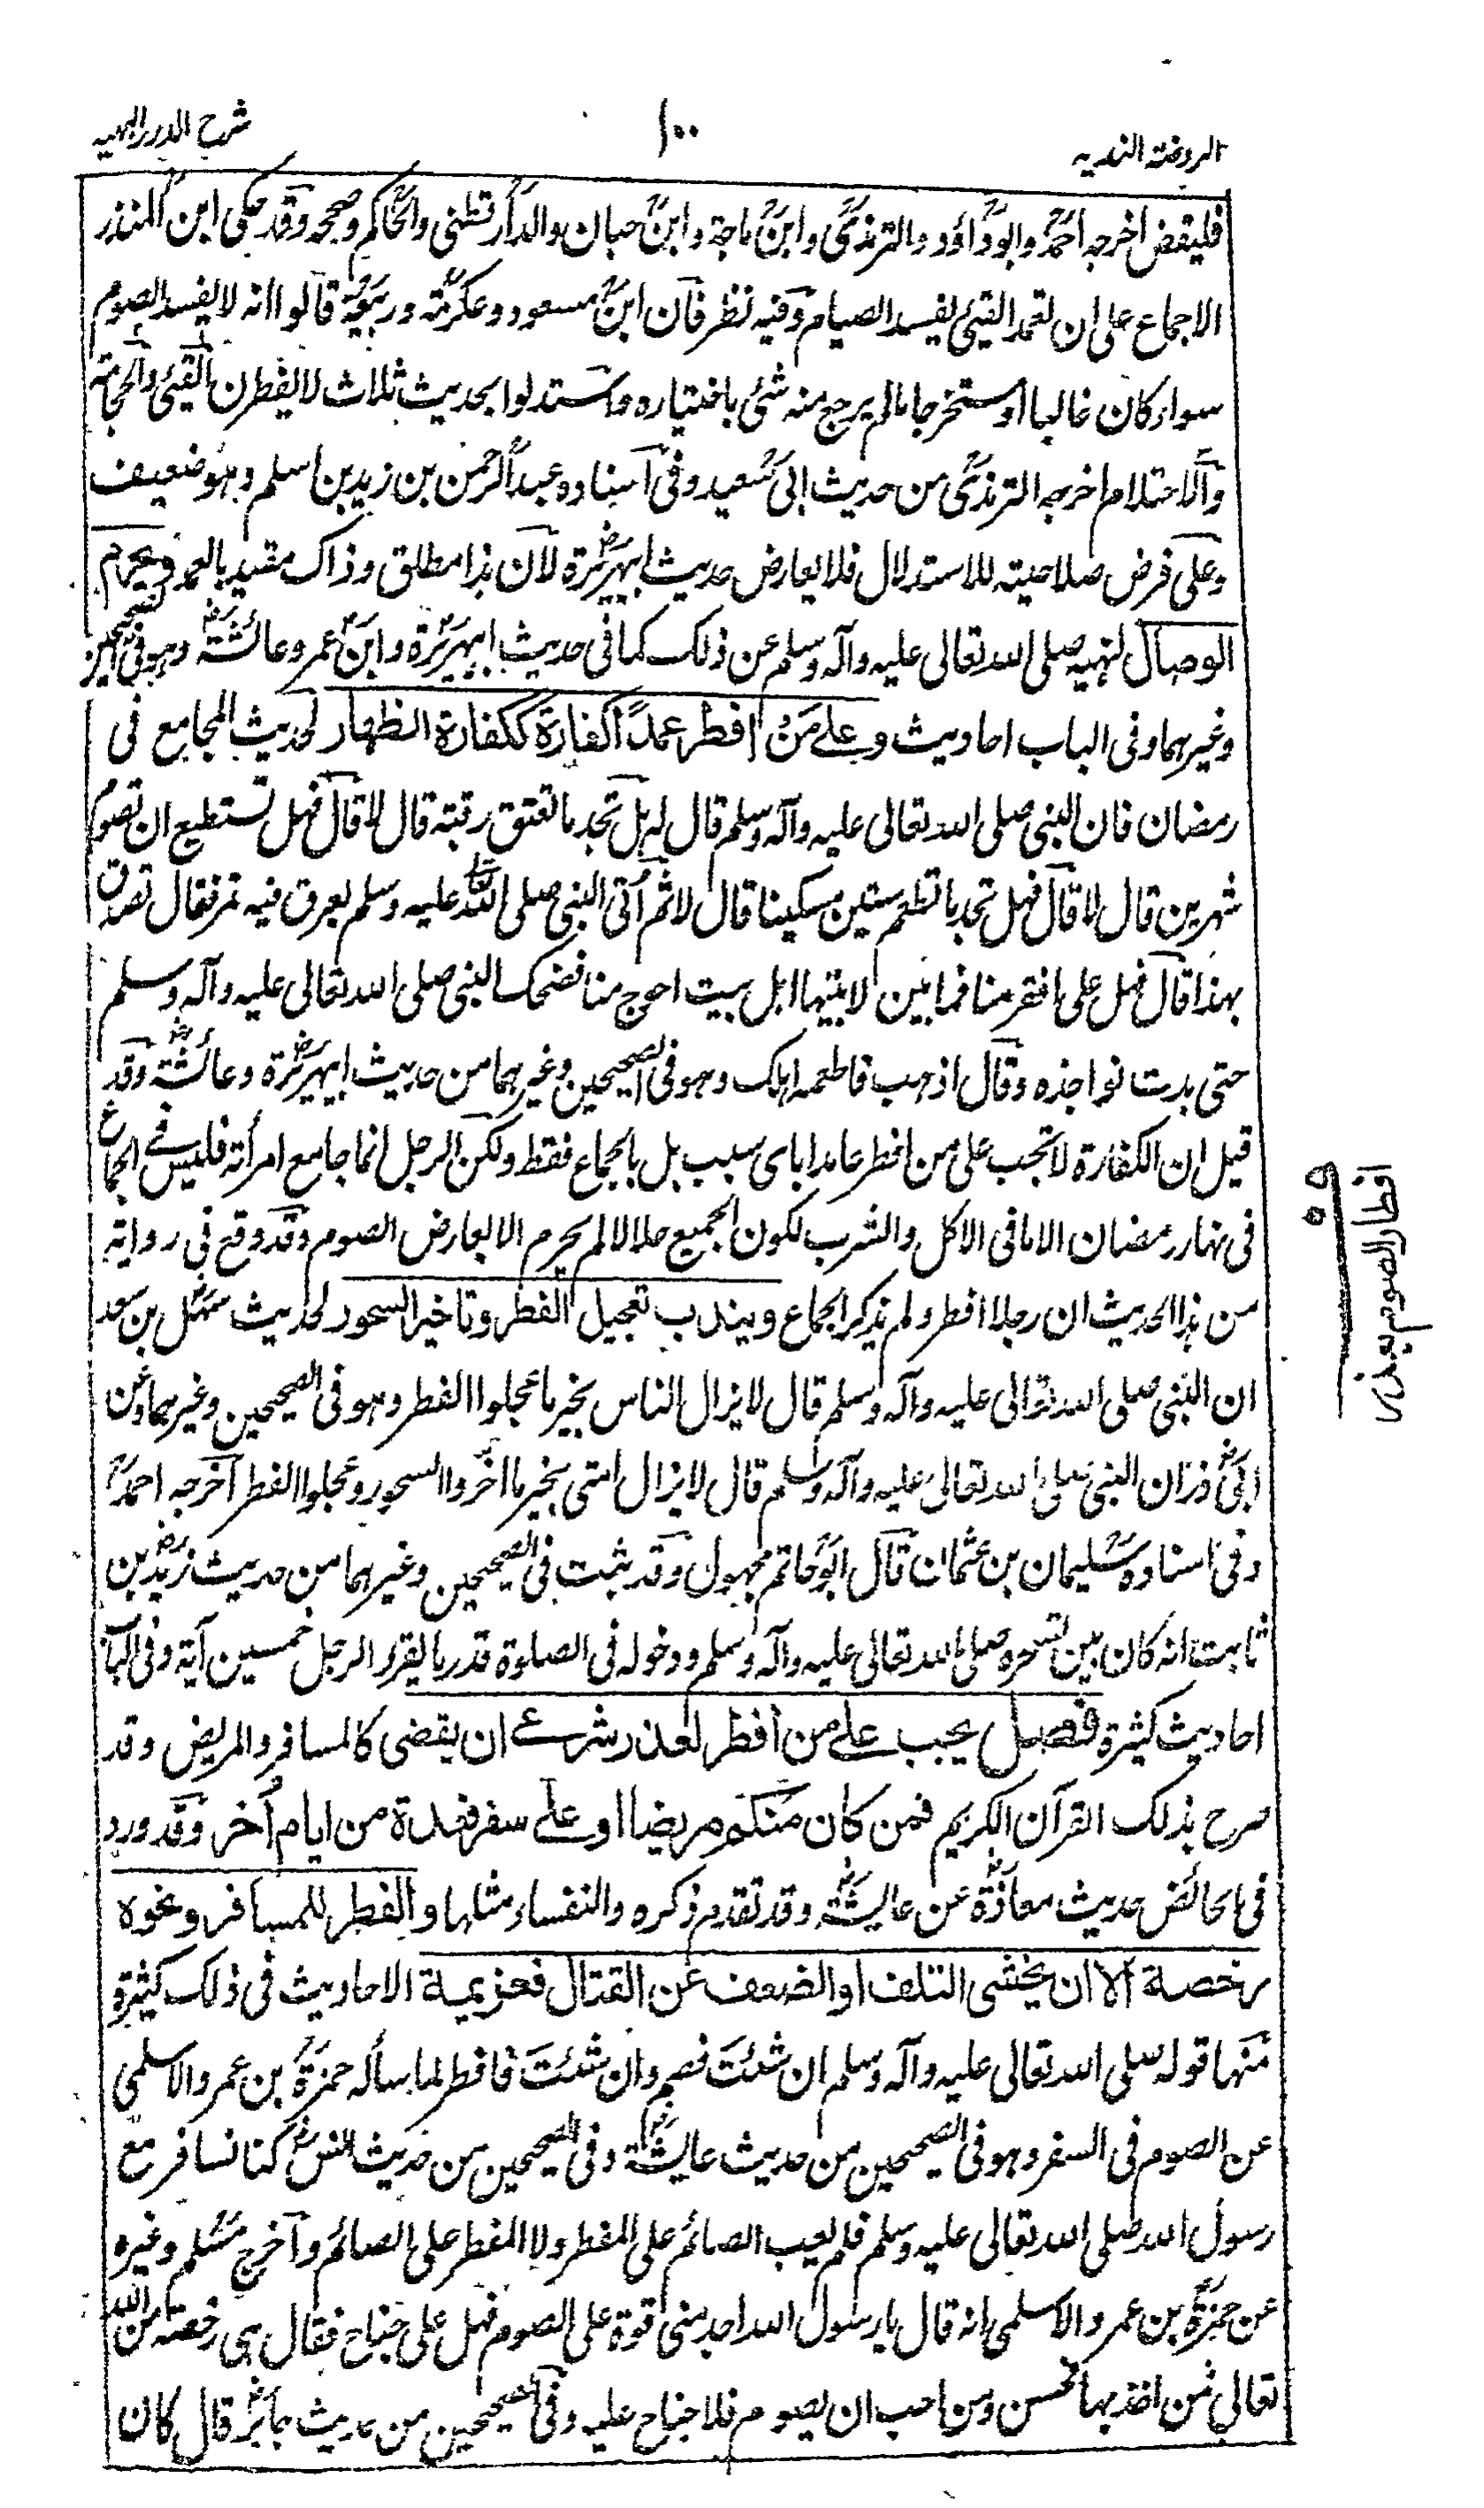 الروضة الندية
١٠٠
شرح الدرر البهية
فليقض اخرجه احمد وابوداؤد والترمذى وابن ماجة وابن حبان والدارقطنى والحاكم وصححه وقد حكى ابن المنذر
الاجماع على ان تعمد القيئ يفسد الصيام وفيه نظر فان ابن مسعود وعكرمة وربيعة قالوا انه لا يفسد الصوم
سواء كان غالبا او مستخرجا ما لم يرجع منه شئ باختياره واستدلوا بحديث ثلاث لا يفطرن القيئ والحجامة
والاحتلام اخرجه الترمذى من حديث ابى سعيد وفى اسناده عبد الرحمن بن زيد بن اسلم وهو ضعيف
وعلى فرض صلاحيته للاستدلال فلا يعارض حديث ابيهريرة لان هذا مطلق وذاك مقيد بالعمد ويحرم
الوصال لنهيه صلى الله تعالى عليه وآله وسلم عن ذلك كما فى حديث ابيهريرة وابن عمر وعائشة وهو فى الصحيحين
وغيرهما وفى الباب احاديث وعلے من افطر عمدًا كفارة ككفارة الظهار لحديث المجامع فى
رمضان فان النبى صلى الله تعالى عليه وآله وسلم قال له هل تجد ما تعتق رقبة قال لا قال فهل تستطيع ان تصوم
شهرين قال لا قال فهل تجد ما تطعم ستين مسكينا قال لا ثم أتى النبى صلى الله تعالى عليه وسلم بعرق فيه تمر فقال تصدق
بهذا قال فهل على افقر منا فما بين لابتيها اهل بيت احوج منا فضحك النبى صلى الله تعالى عليه وآله وسلم
حتى بدت نواجذه وقال اذهب فاطعمه اهلك وهو فى الصحيحين وغيرهما من حديث ابيهريرة وعائشة وقد
قيل ان الكفارة لا تجب على من افطر عامدا باى سبب بل بالجماع فقط ولكن الرجل انما جامع امرأته فليس فے الجماع
فى نهار رمضان الا ما فى الاكل والشرب لكون الجميع حلالا لم يحرم الا لعارض الصوم وقد وقع فى رواية
من هذا الحديث ان رجلا افطر ولم يذكر الجماع ويندب تعجيل الفطر وتاخير السحور لحديث سهل بن سعد
ان النبى صلى الله تعالى عليه وآله وسلم قال لا يزال الناس بخير ما عجلوا الفطر وهو فى الصحيحين وغيرهما وعن
ابى ذر ان النبى صلى الله تعالى عليه وآله وسلم قال لا يزال امتى بخير ما اخروا السحور وعجلوا الفطر اخرجه احمد
وفى اسناده سليمان بن عثمان قال ابو حاتم مجهول وقد ثبت فى الصحيحين وغيرهما من حديث زيد بن
ثابت انه كان بين تسحره صلى الله تعالى عليه وآله وسلم ودخوله فى الصلوة قدر ما يقرء الرجل خمسين آية وفى الباب
احاديث كثيرة فصل يجب علے من افطر لعذر شرعے ان يقضى كالمسافر والمريض وقد
صرح بذلك القرآن الكريم فمن كان منكم مريضا او علے سفر فعدة من ايام أخر وقد ورد
فى الحائض حديث معاذة عن عائشة وقد تقدم ذكره والنفساء مثلها والفطر للمسافر ونحوه
رخصة الا ان يخشى التلف او الضعف عن القتال فعزيمة الاحاديث فى ذلك كثيرة
منها قوله صلى الله تعالى عليه وآله وسلم ان شئت فصم وان شئت فافطر لما سأله حمزة بن عمرو الاسلمى
عن الصوم فى السفر وهو فى الصحيحين من حديث عائشة وفى الصحيحين من حديث انس كنا نسافر مع
رسول الله صلى الله تعالى عليه وسلم فلم يعب الصائم على المفطر ولا المفطر على الصائم واخرج مسلم وغيره
عن حمزة بن عمرو الاسلمى انه قال يا رسول الله اجد منى قوة على الصوم فهل على جناح فقال هى رخصة من الله
تعالى فمن اخذ بها فحسن ومن احب ان يصوم فلا جناح عليه وفى الصحيحين من حديث جابر قال كان
افطار الصوم بعذر